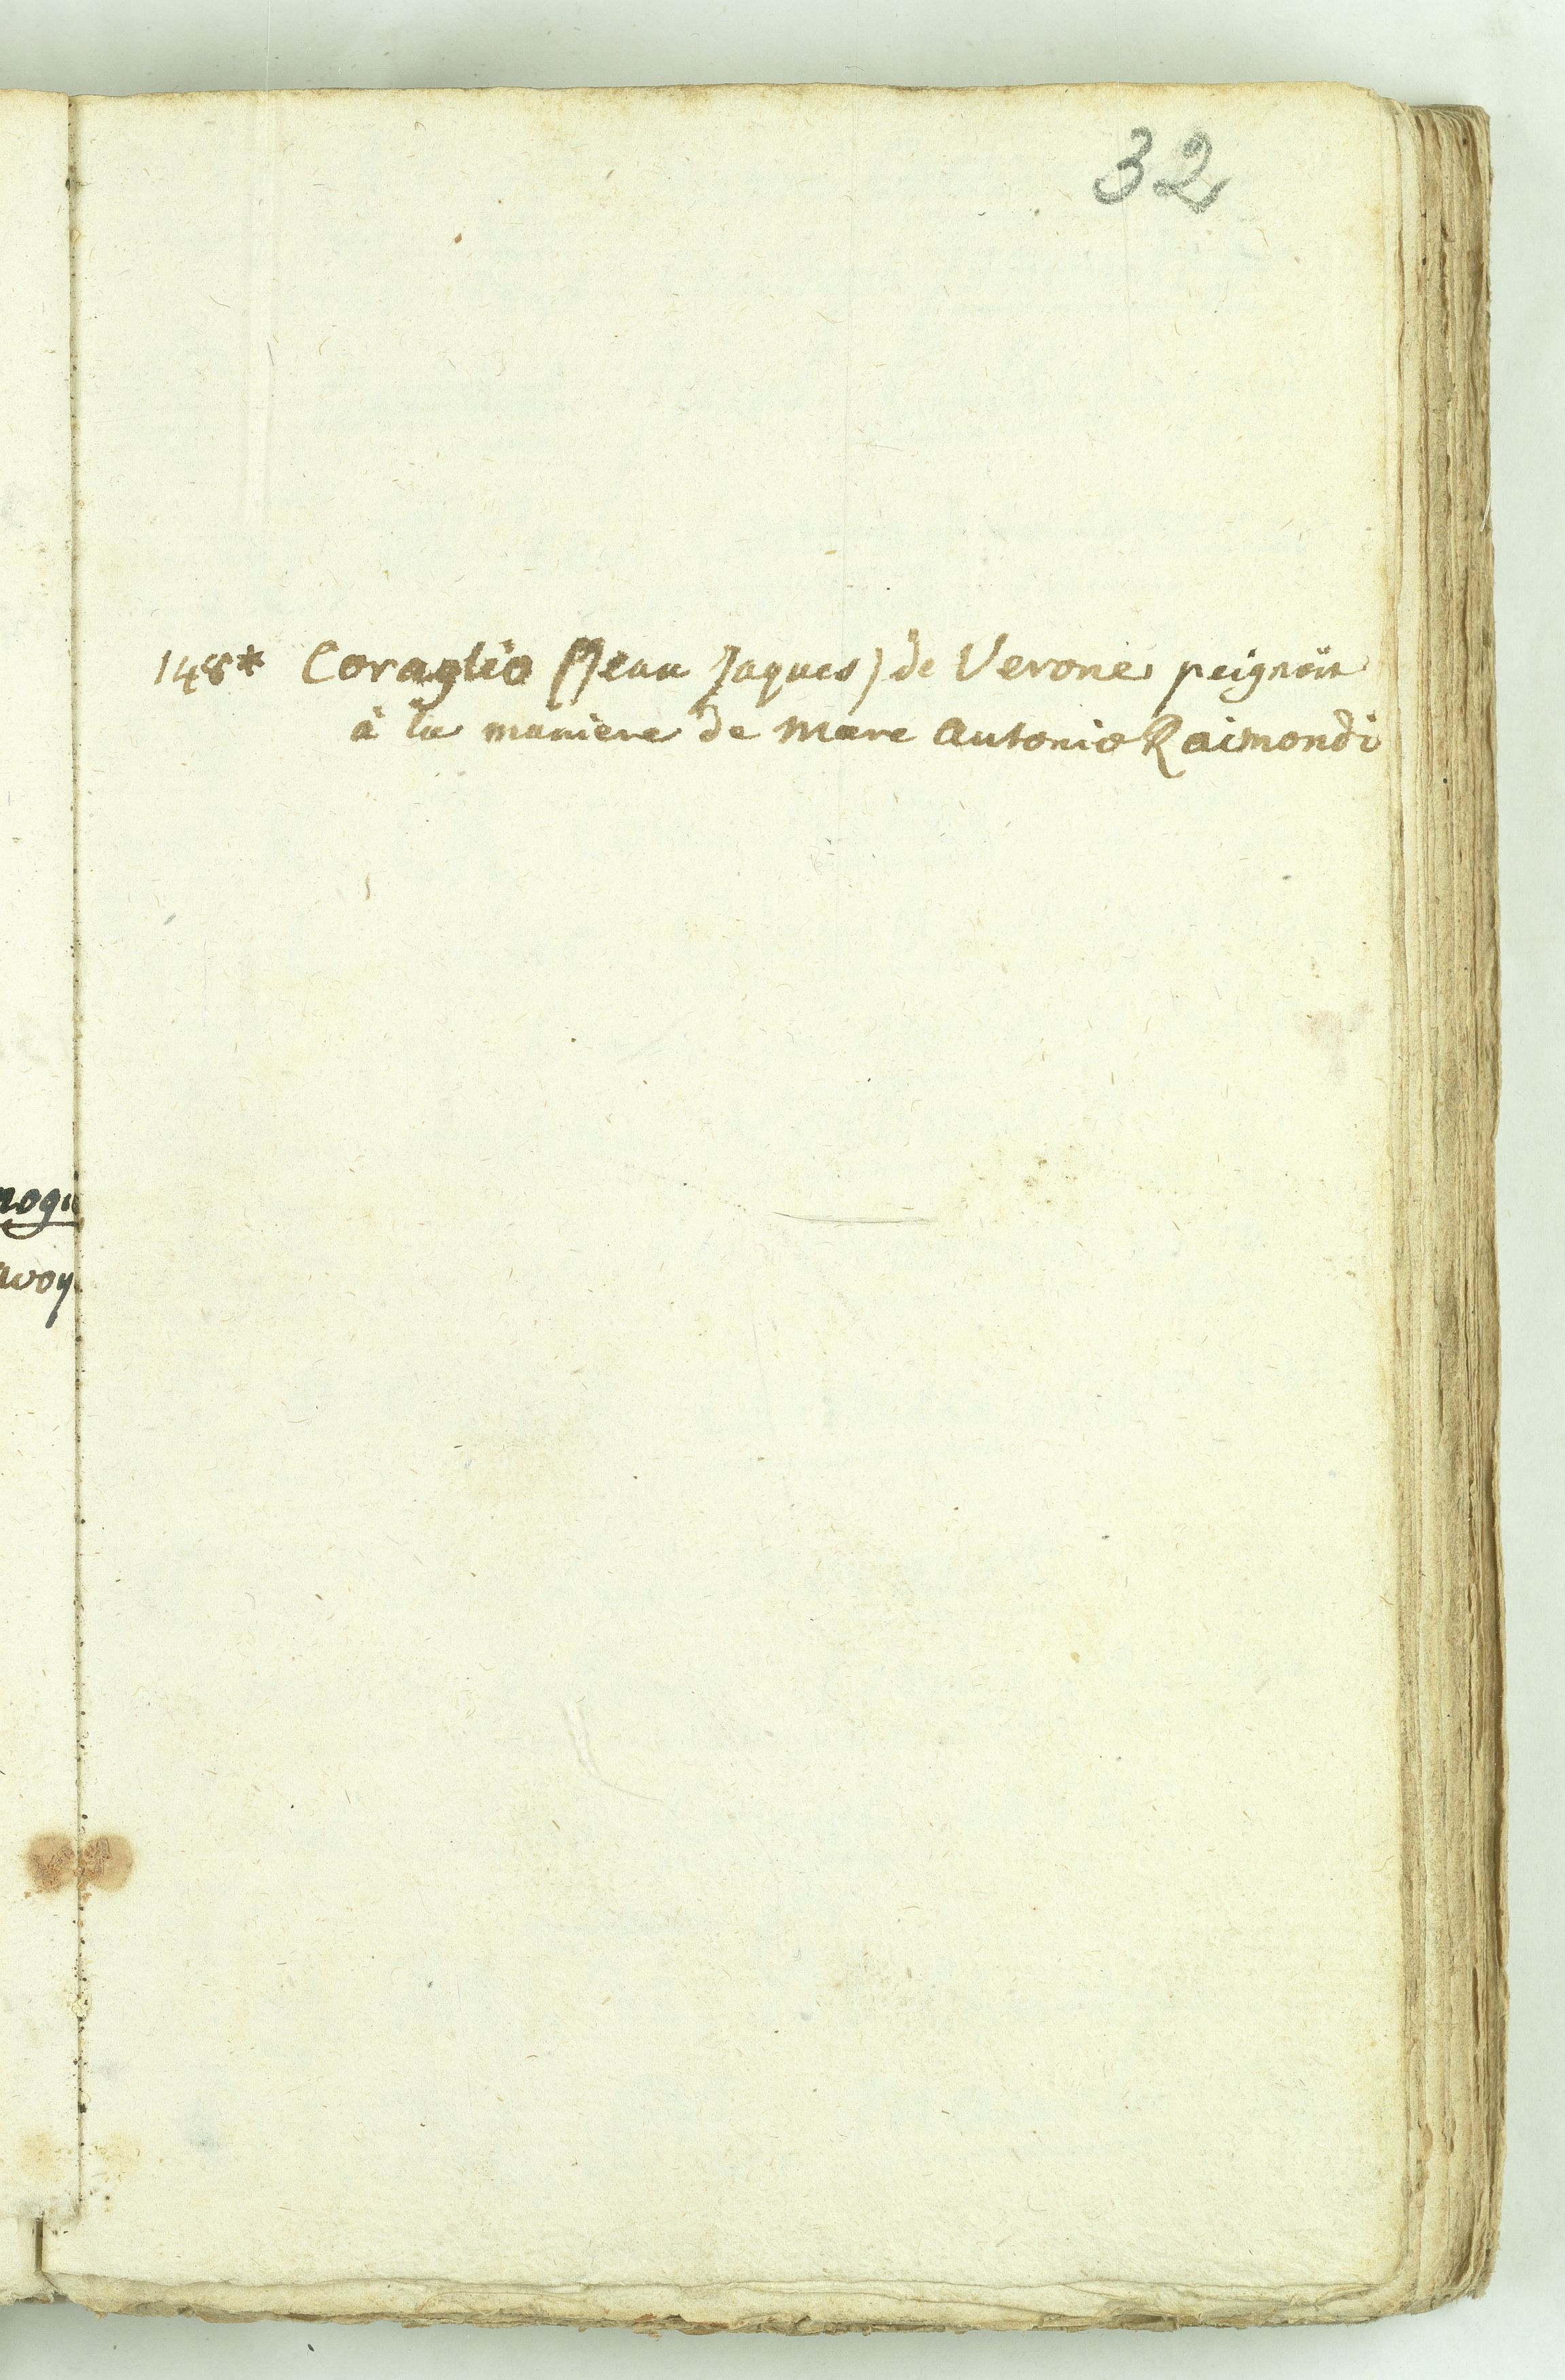 32
148* Coraglio (Jean Jaques) de Verone peignoit
à la maniere de Marc Antonio Raimondi